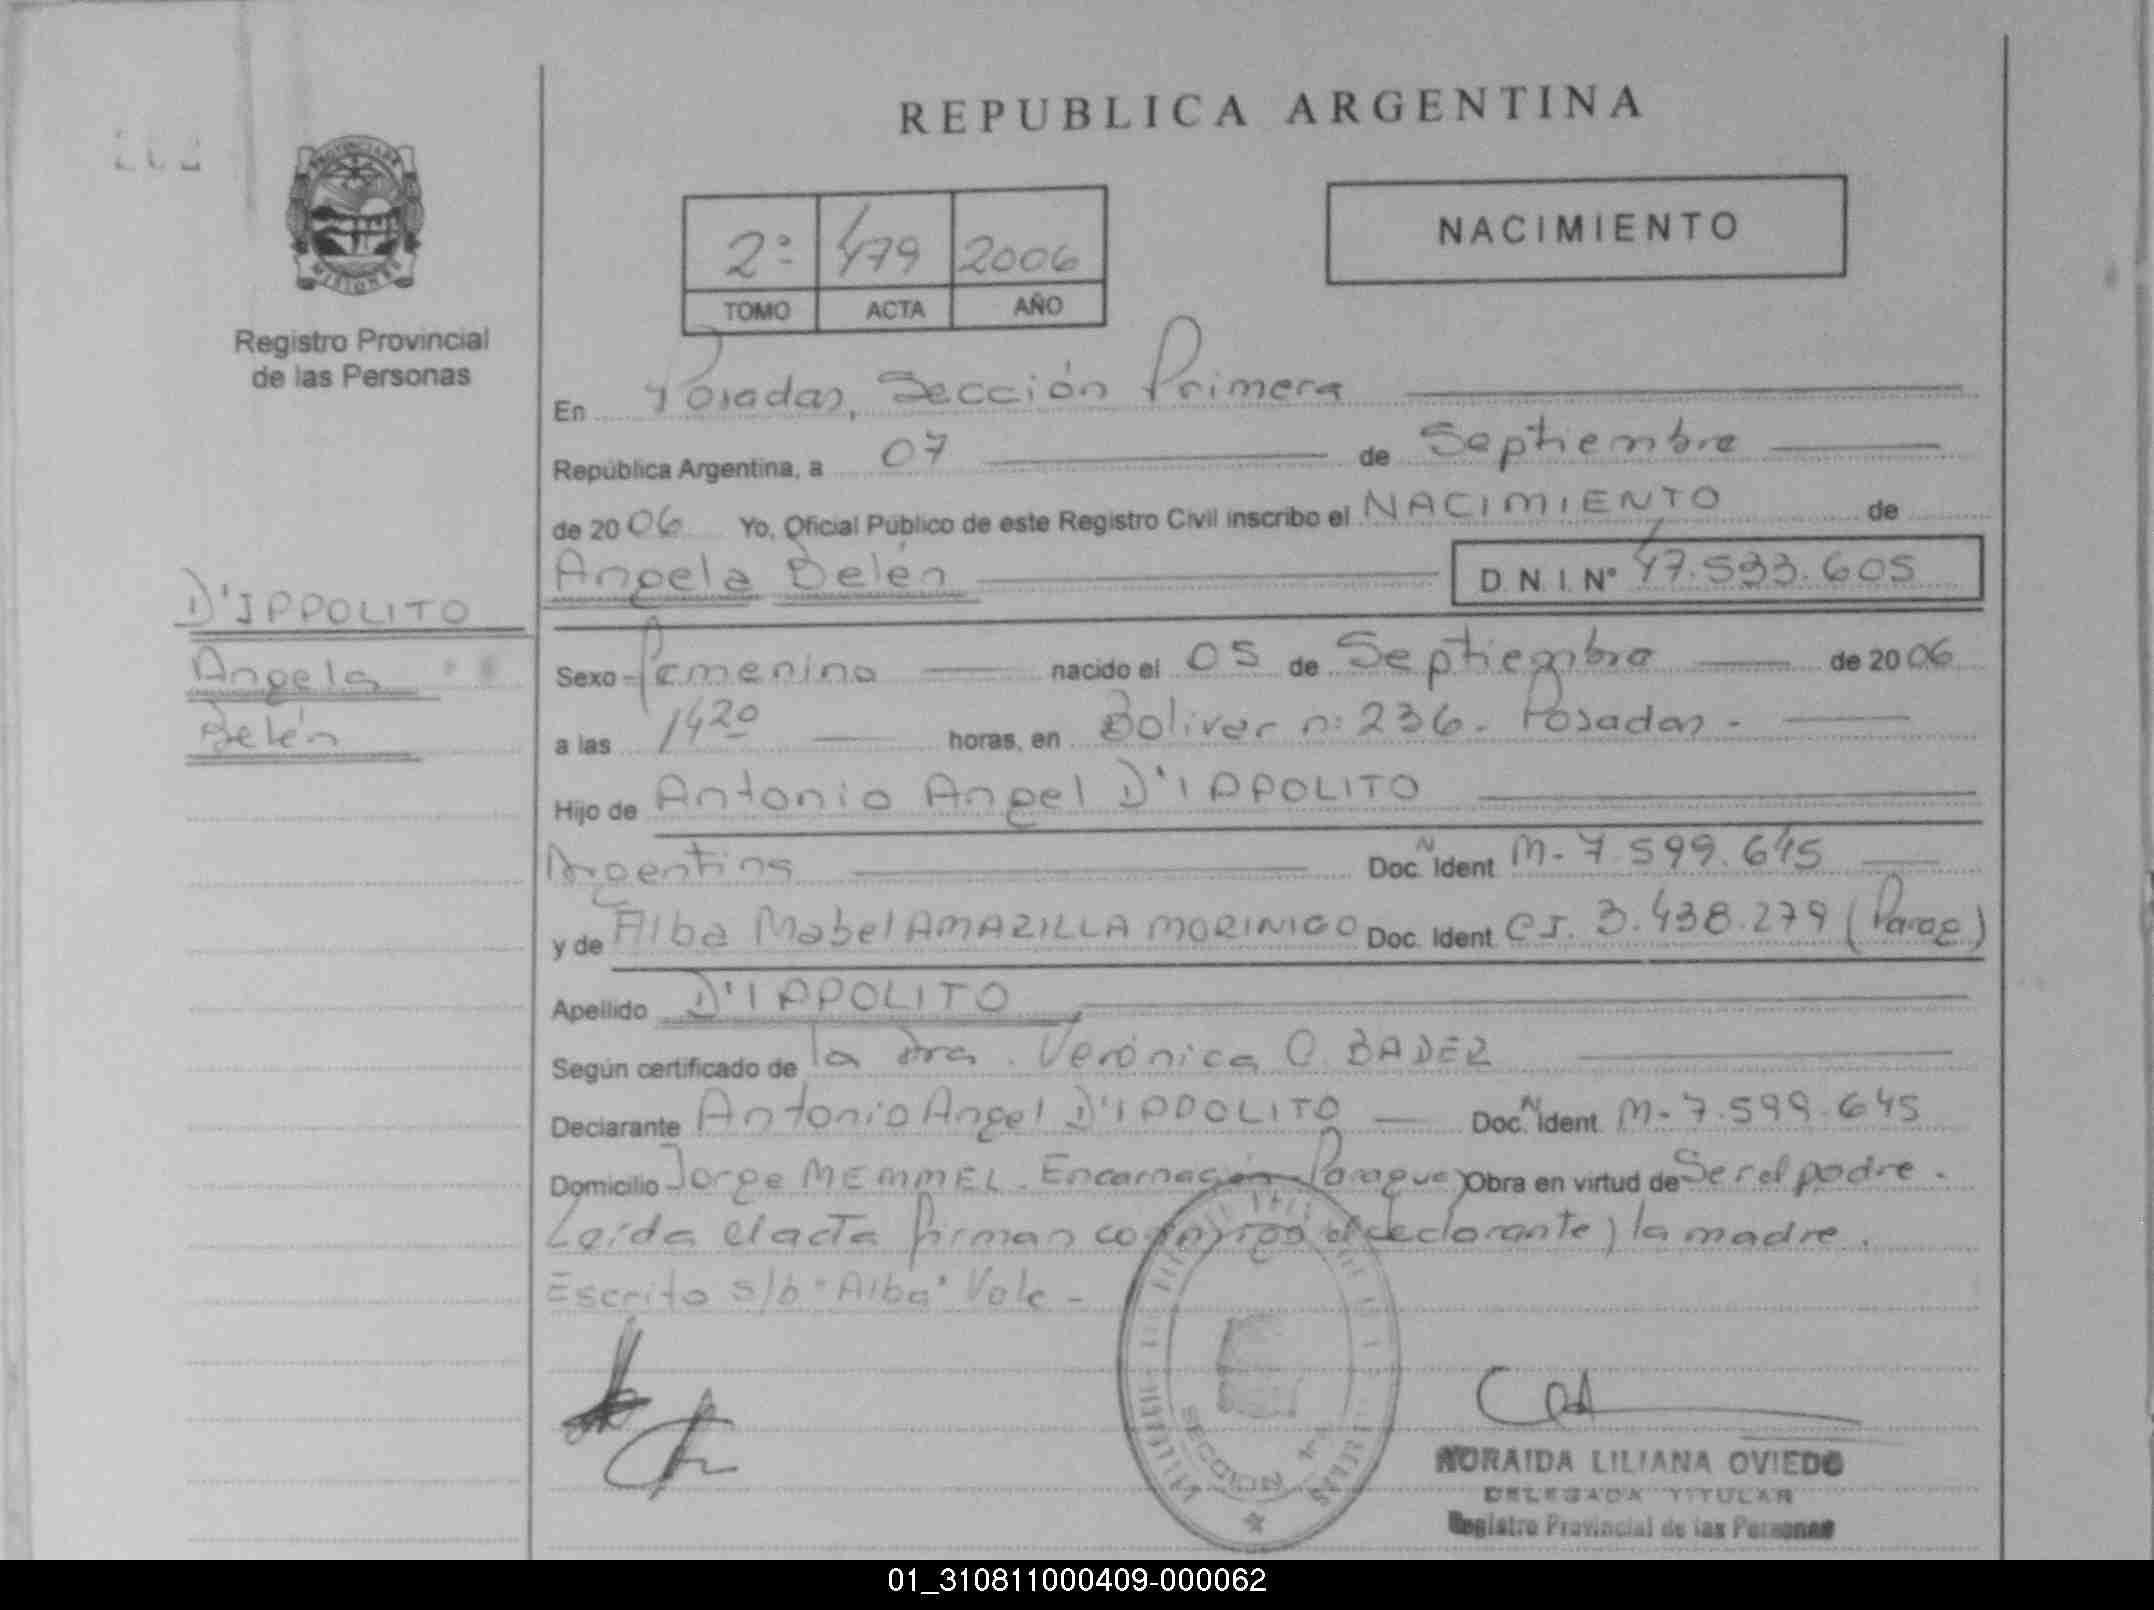 REPUBLICA ARGENTINA
PROVINCIA DE
MISIONES
Registro Provincial
de las Personas
2º 479 2006
TOMO ACTA AÑO
NACIMIENTO
En Posadas, Sección Primera
República Argentina, a 07 de Septiembre
de 2006 Yo, Oficial Público de este Registro Civil inscribo el NACIMIENTO de
Angela Belén D.N.I. Nº 47.533.605
D'IPPOLITO
Angela
Belén
Sexo Femenino nacido el 05 de Septiembre de 2006
a las 14 20 horas, en Bolivar nº 236 - Posadas -
Hijo de Antonio Angel D'IPPOLITO
Argentina Doc. N Ident M-7.599.645
y de Alba Mabel AMARILLA MORINIGO Doc. Ident CI. 3.438.279 (Parag)
Apellido D'IPPOLITO
Según certificado de la Dra. Verónica C. BADER
Declarante Antonio Angel D'IPPOLITO Doc. N Ident. M-7.599.645
Domicilio Jorge MEMMEL. Encarnación Paraguay Obra en virtud de Ser el padre.
Leída el acta firman conmigo el declarante y la madre.
Escrito s/b "Alba" Vale -
SECCION 1ª
NORAIDA LILIANA OVIEDO
DELEGADA TITULAR
Registro Provincial de las Personas
01_310811000409-000062